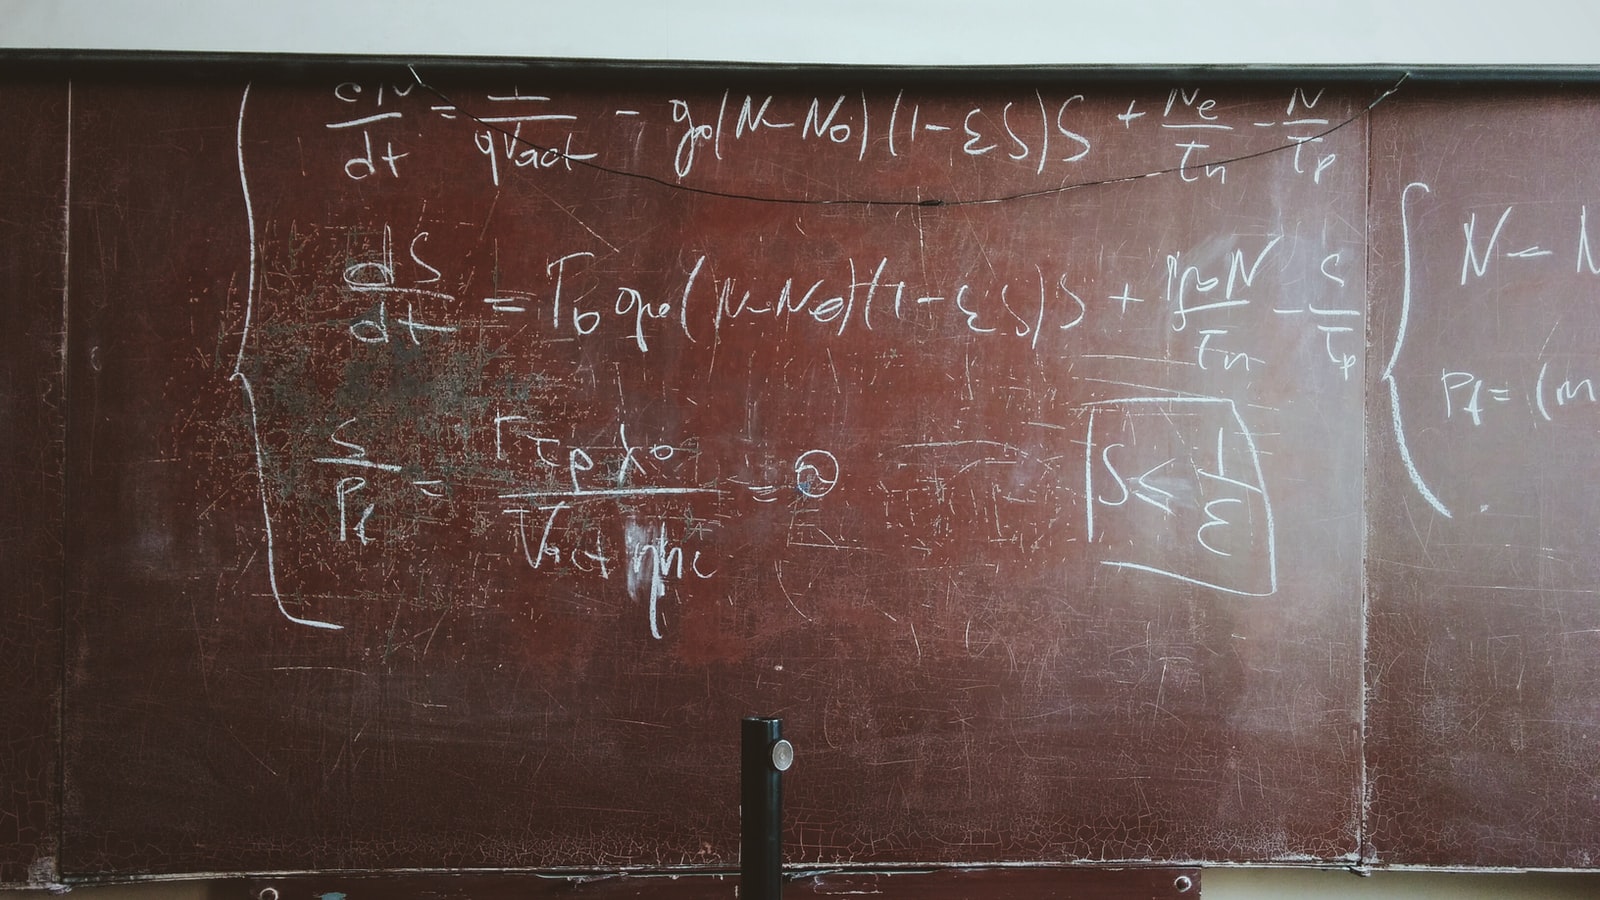 dN/dt = I/qVact - g0(N-N0)(1-εS)S + Ne/τn - N/τp
dS/dt = Γ0 g0(N-N0)(1-εS)S + N/τn - S/τp
S/Pf = Γτpλ0/Vact ηhc =
S ≤ 1/ε
N -
Pf = (m